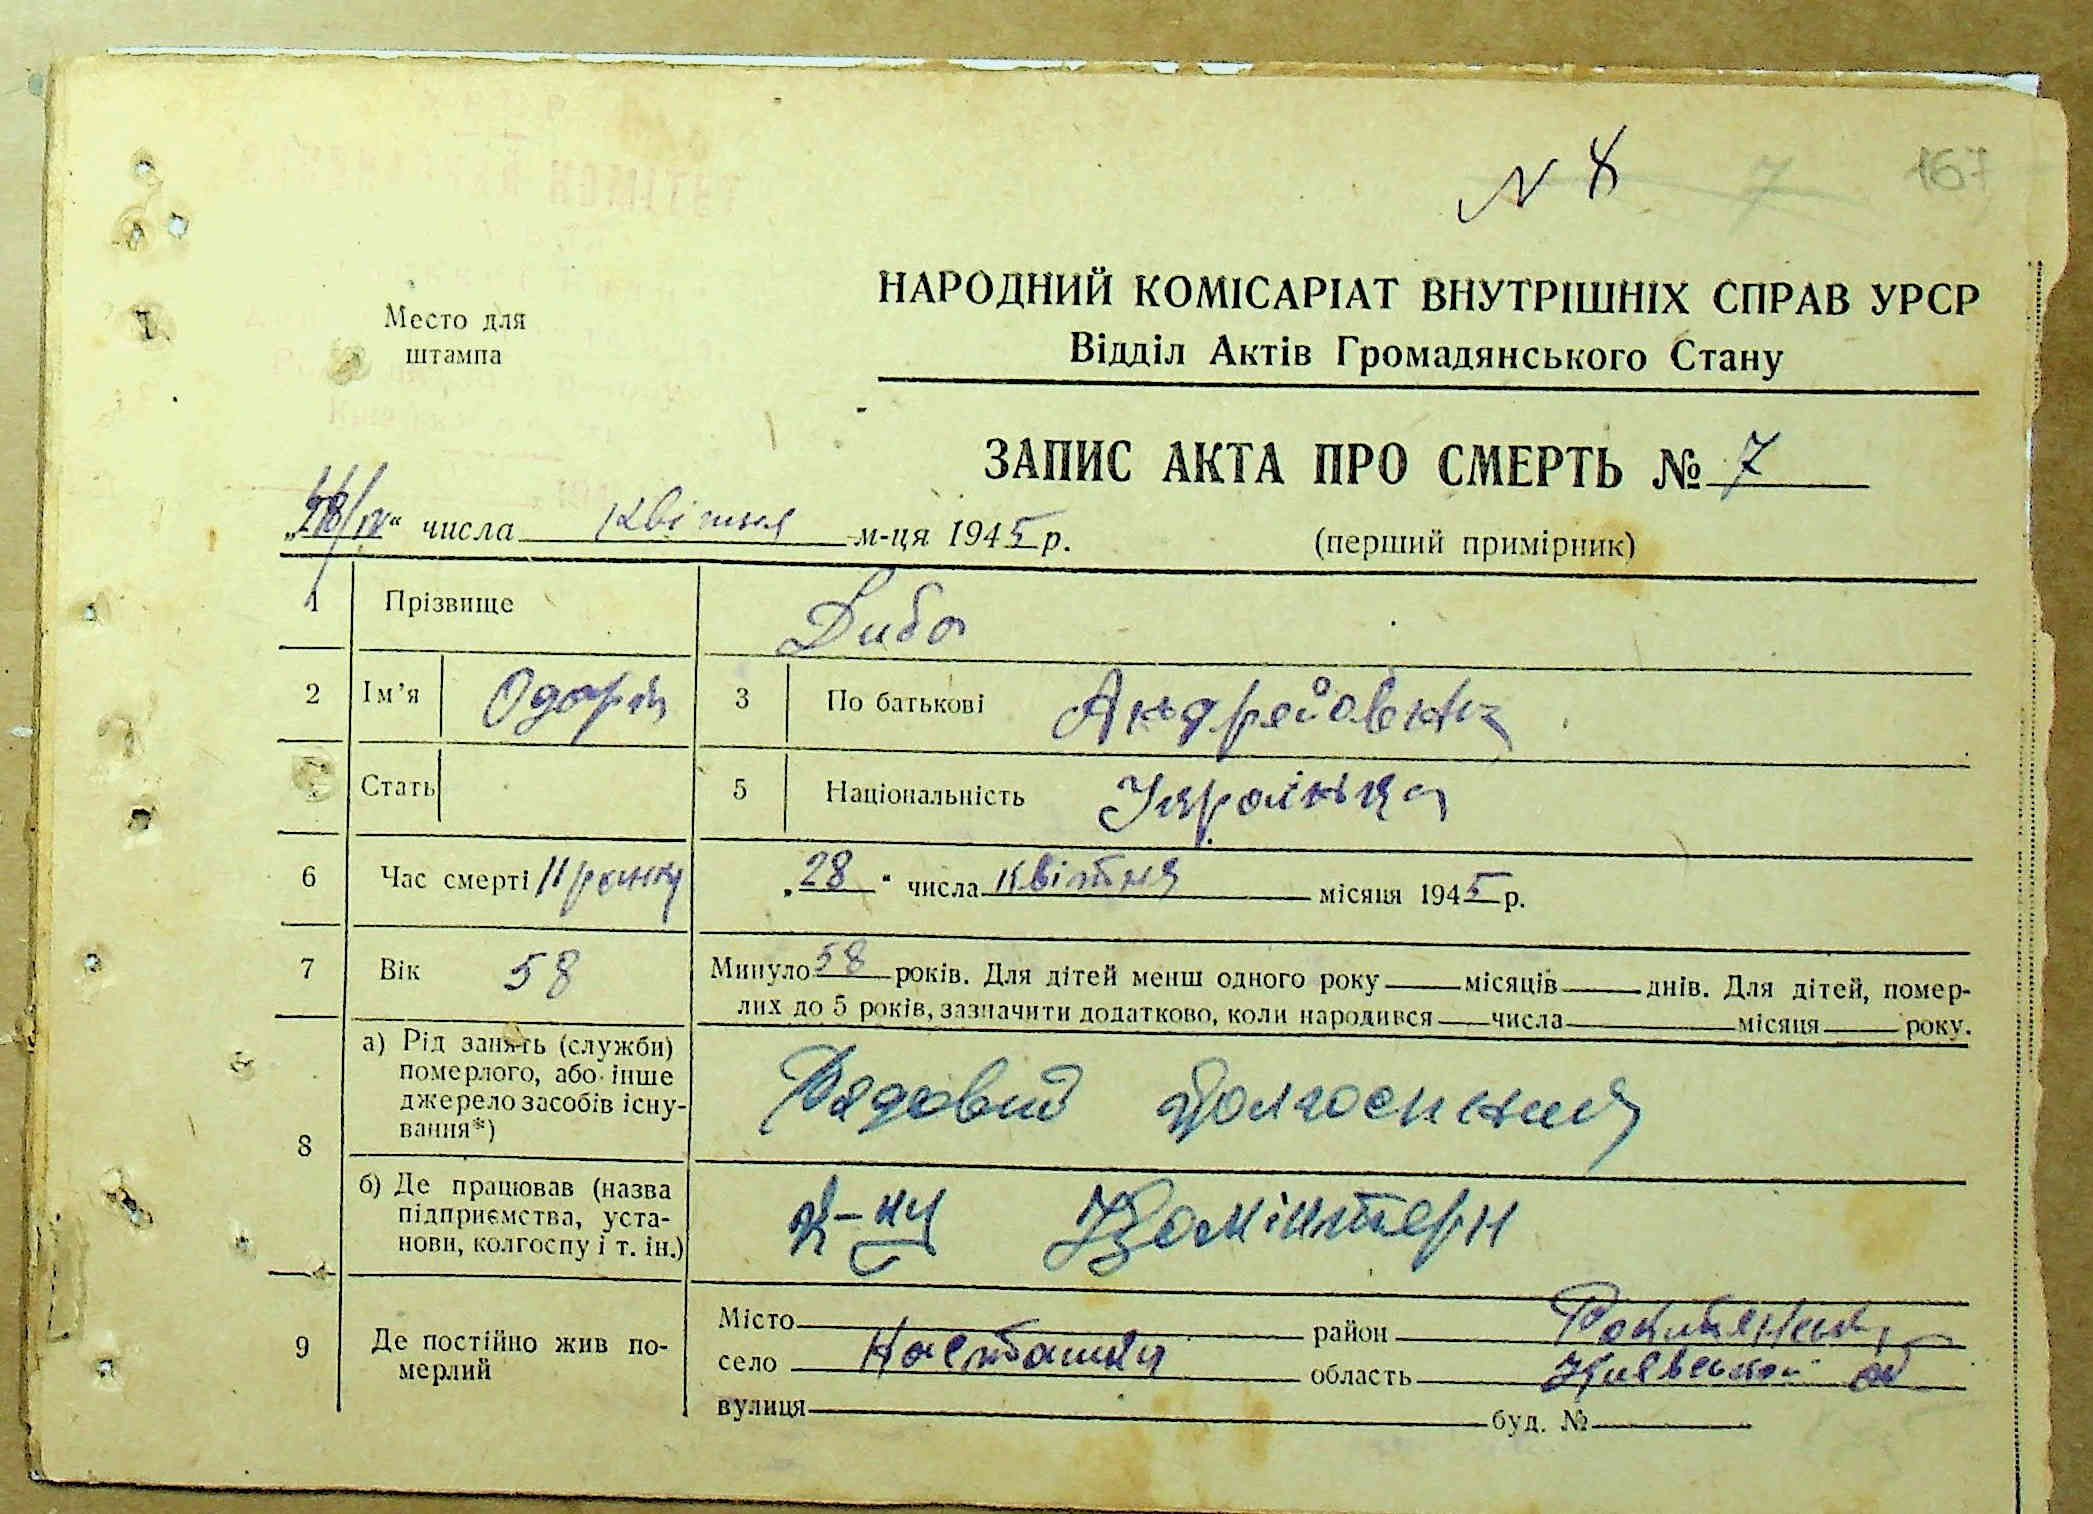 N 8 7 167
НАРОДНИЙ КОМІСАРІАТ ВНУТРІШНІХ СПРАВ УРСР
Место для штампа
Відділ Актів Громадянського Стану
ЗАПИС АКТА ПРО СМЕРТЬ № 7
„28/IV“ числа квітня м-ця 1945 р. (перший примірник)
1 Прізвище Диба
2 Ім'я Одарка 3 По батькові Андрейовна
Стать 5 Національність Українка
6 Час смерті 11 ранку „28“ числа квітня місяця 1945 р.
7 Вік 58 Минуло 58 років. Для дітей менш одного року місяців днів. Для дітей, помер-
лих до 5 років, зазначити додатково, коли народився числа місяця року.
8 а) Рід занять (служби)
померлого, або інше
джерело засобів існу-
вання*)
Рядовий колгоспник
б) Де працював (назва
підприємства, уста-
нови, колгоспу і т. ін.)
Комінтерн
9 Де постійно жив по-
мерлий
Місто район Рокитянськ
село Насташка область Київської об
вулиця буд. №